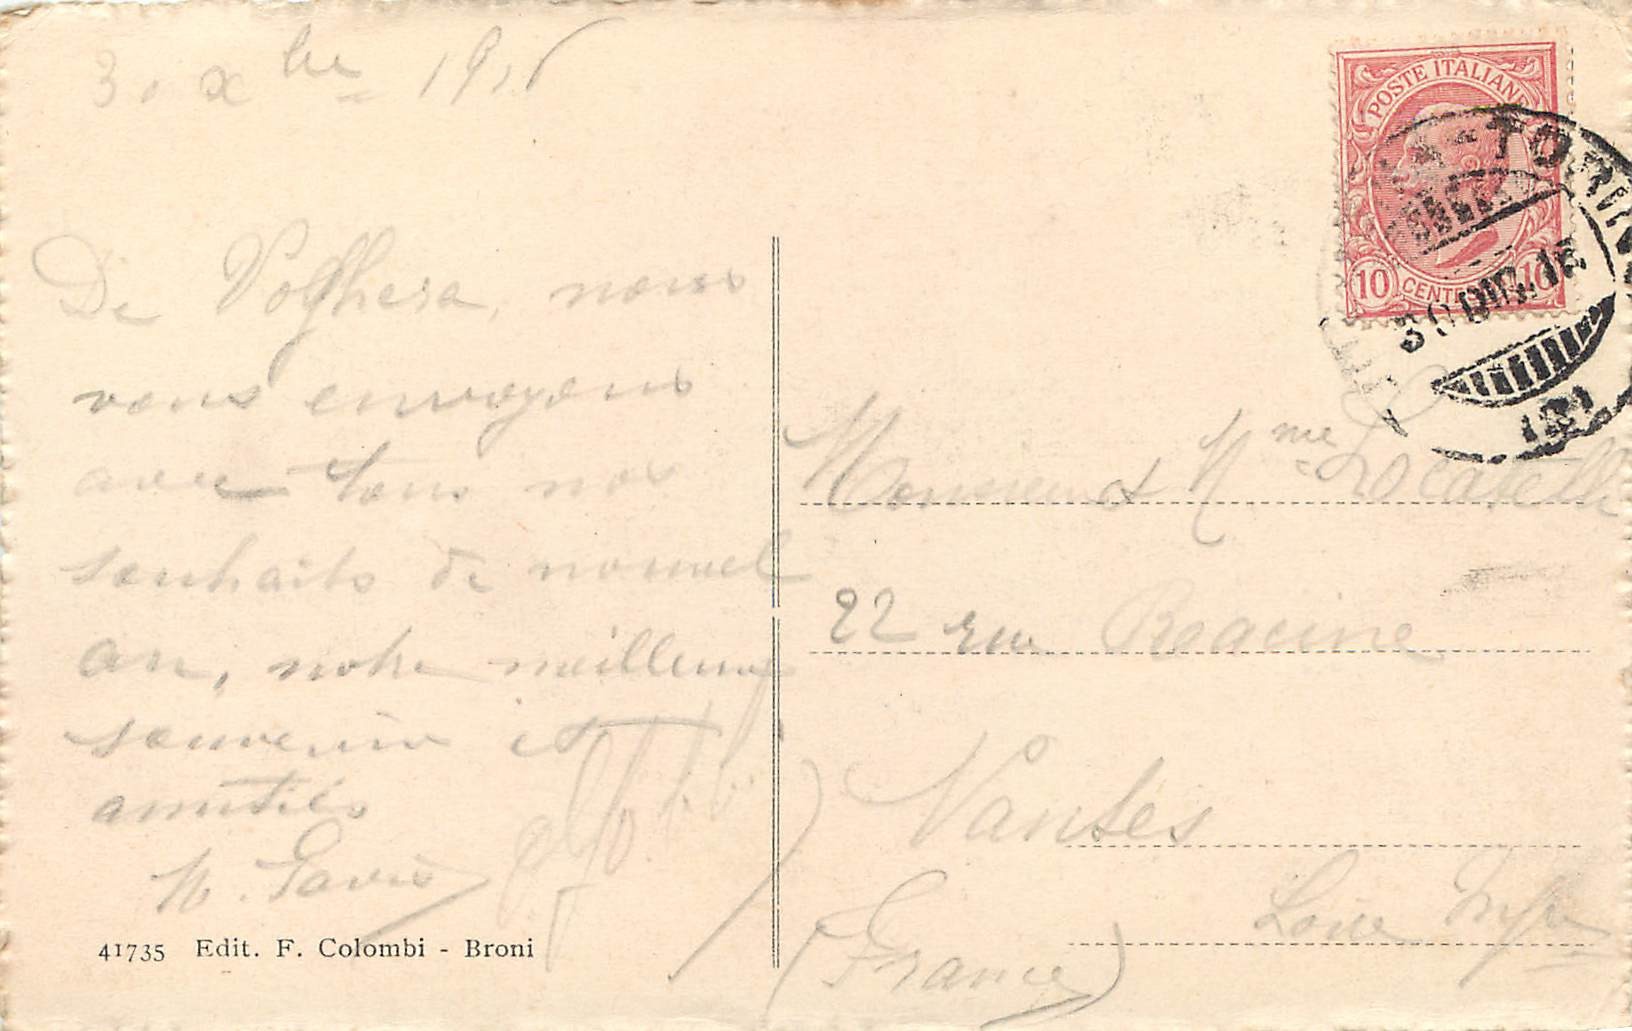 30 Xbre 1916
De Voghera, nous
vous envoyons
avec tous nos
souhaits de nouvel
an, notre meilleur
souvenir et
amitiés
41735 Edit. F. Colombi - Broni
POSTE ITALIANE
10 CENT 10
TORINO
30 DIC. 16
Monsieur & Mme Locatelli
22 rue Racine
Nantes
Loire Infre
(France)